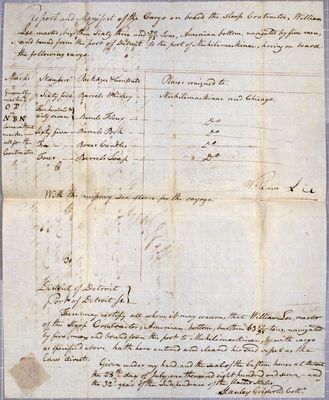 Report and Manifest of the Cargo on board the Sloop Contractor, William
Lee, master, burthen Sixty three and tons, American bottom, navigated by five men,
and bound from the port of Detroit to the port of Michilimackinac, having on board
the following cargo.
Marks Numbers Packages & Contents Places consigned to
Generally marked Sixty five Barrels Whiskey Michilimackinac and Chicago.
OP
NBN
sixty seven Barrels Flour Do
some without marks Sixty five Barrels Pork Do
all for the Contractor Ten Boxes Candles Do
Four Barrels Soap Do
William Lee
With the necessary Sea Stores for the voyage.
District of Detroit
Port of Detroit
These may certify all whom it may concern that William Lee, master
of the Sloop Contractor, American bottom, burthen 63 tons, navigated
by five men, and bound from this port to Michilimackinac, with cargo
as specified above, hath here entered and cleared his said vessel as the
Laws direct.
Given under my hand and the seal of the Custom house at Detroit
the 28th day of July, one thousand eight hundred and seven, and
the 32d year of the Independence of the United States.
Stanley Griswold Collr.